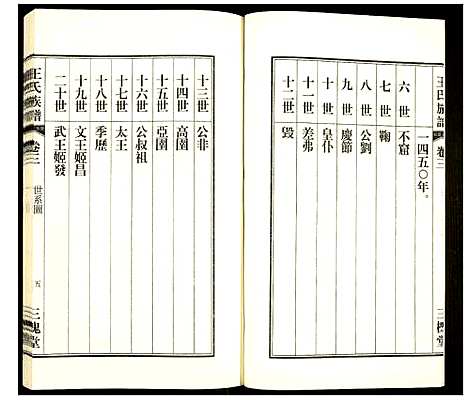 王氏族譜
卷三
三槐堂
一四五〇年。
六世 不窟
七世 鞠
八世 公劉
九世 慶節
十世 皇仆
十一世 差弗
十二世 毀
十三世 公非
十四世 高圉
十五世 亞圉
十六世 公叔祖
十七世 太王
十八世 季歷
十九世 文王姬昌
二十世 武王姬發
王氏族譜
卷三
世系圖
五
三槐堂